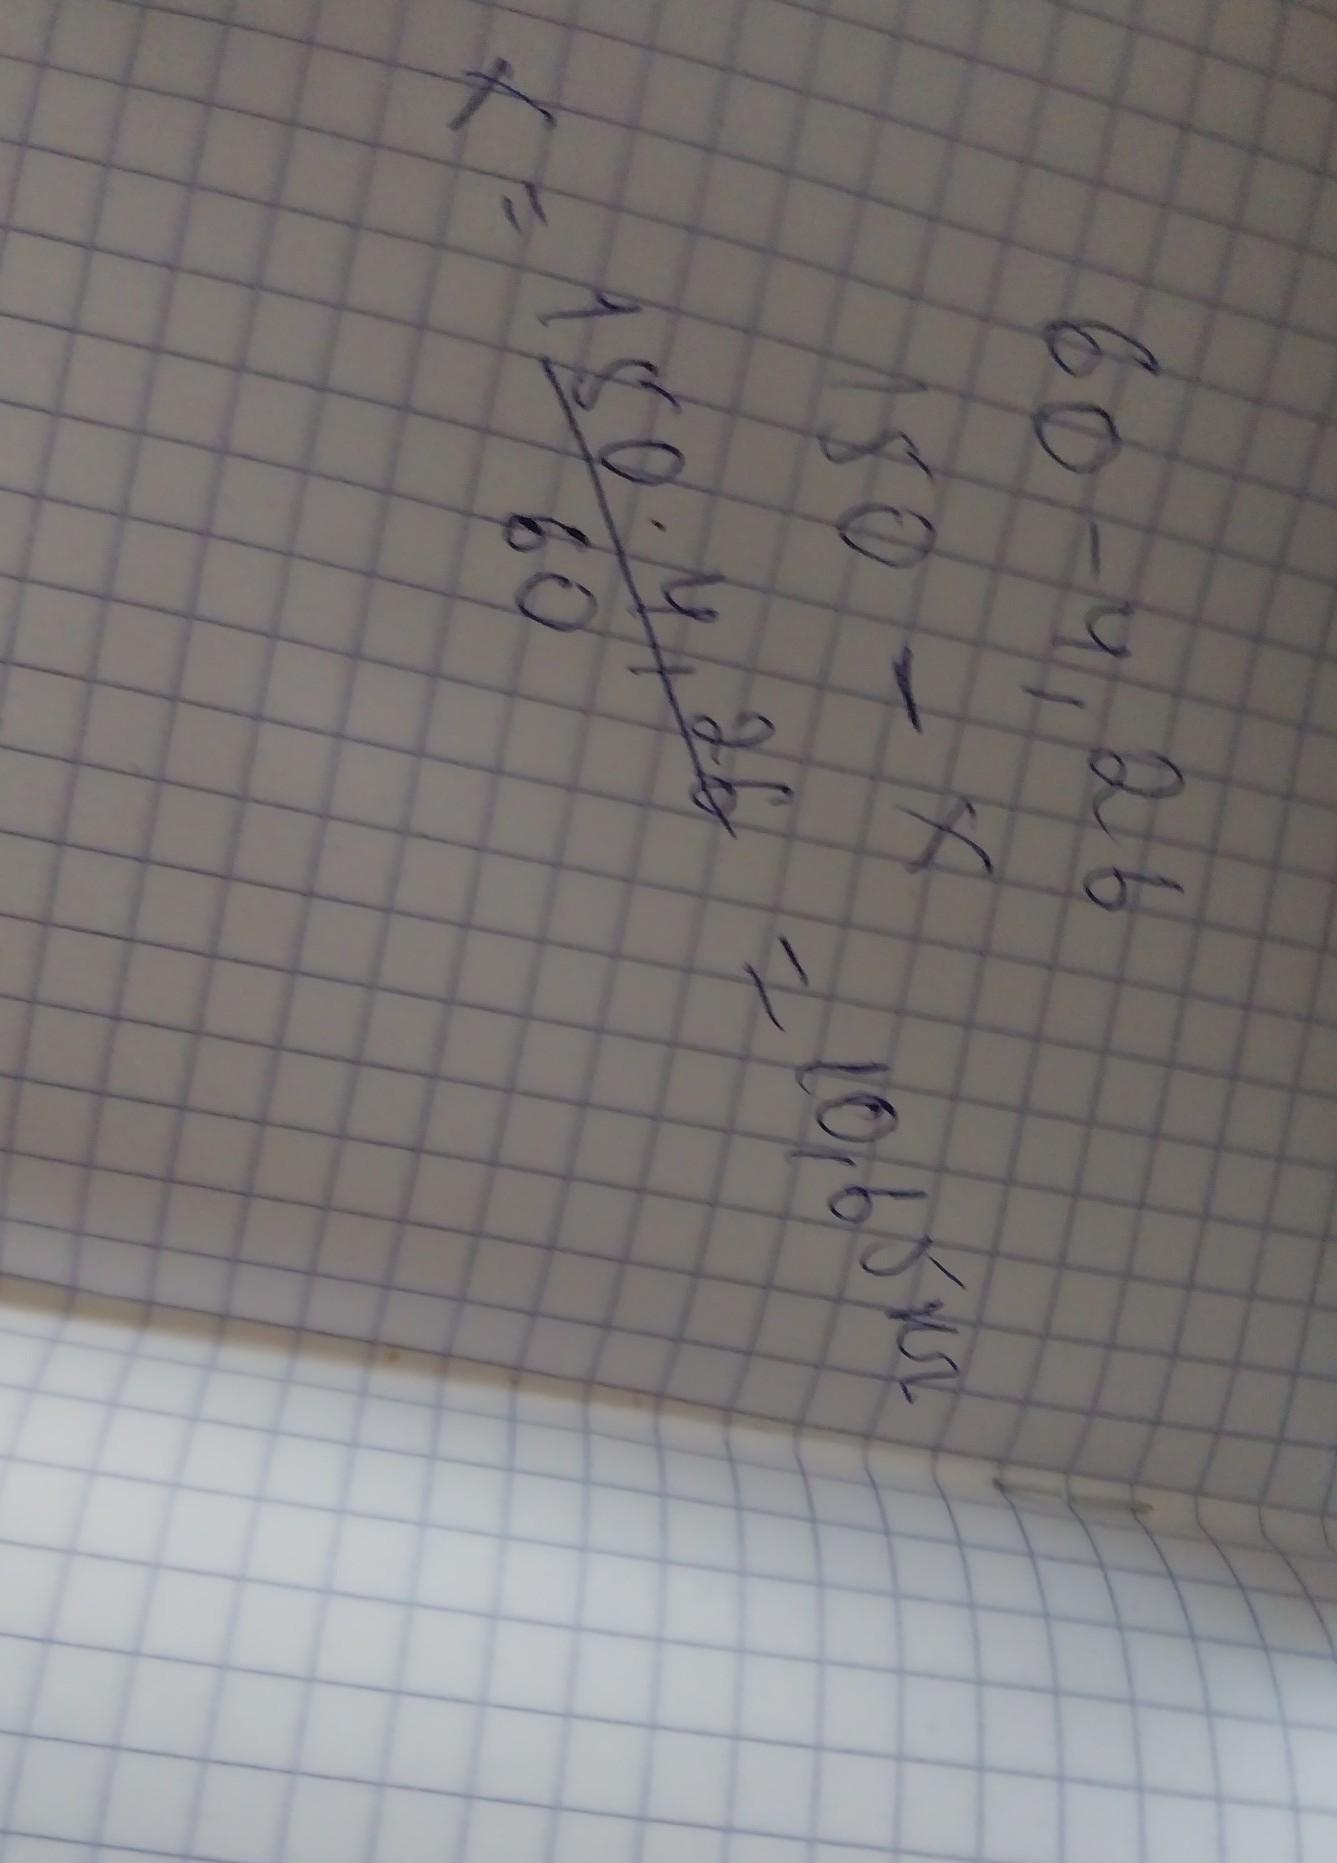 60 - 4,26
150 - x
x = 150 · 4,26 = 10,65
60